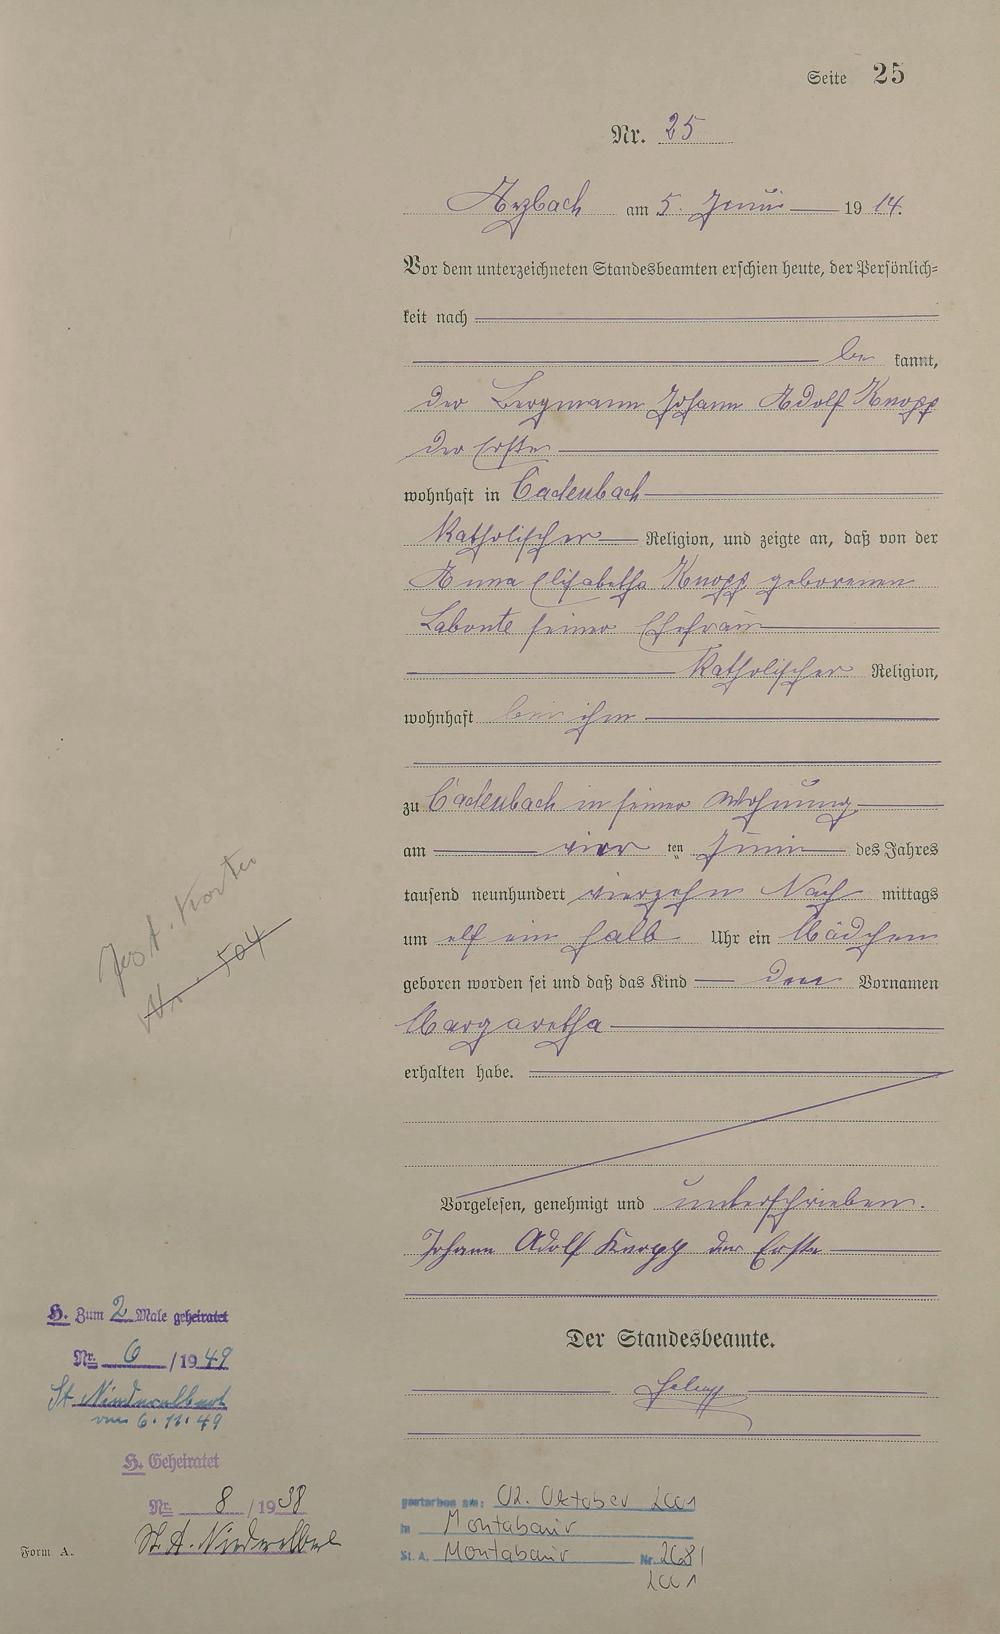 Seite 25
Nr. 25
Arzbach am 5. Juni 19 14.
Vor dem unterzeichneten Standesbeamten erschien heute, der Persönlich-
keit nach
be kannt,
der Bergmann Johann Adolf Knopp
der Erste
wohnhaft in Cadenbach
Katholischer Religion, und zeigte an, daß von der
Anna Elisabetha Knopp geborenen
Labonte seiner Ehefrau
Katholischer Religion,
wohnhaft bei ihm
zu Cadenbach in seiner Wohnung
am vier ten Juni des Jahres
tausend neunhundert vierzehn Nach mittags
um elf ein halb Uhr ein Mädchen
geboren worden sei und daß das Kind den Vornamen
Margaretha
erhalten habe.
Vorgelesen, genehmigt und unterschrieben.
Johann Adolf Knopp der Erste
Der Standesbeamte.
Test. Kartei
Nr. 504
H. Zum 2 Male geheiratet
Nr. 6 /19 49
St Niederelbert
vom 6.11.49
H. Geheiratet
Nr. 8 /19 38
St. A. Niederelbert
Form A.
gestorben am: 02. Oktober 2001
in Montabaur
St. A. Montabaur Nr. 268 /
2001